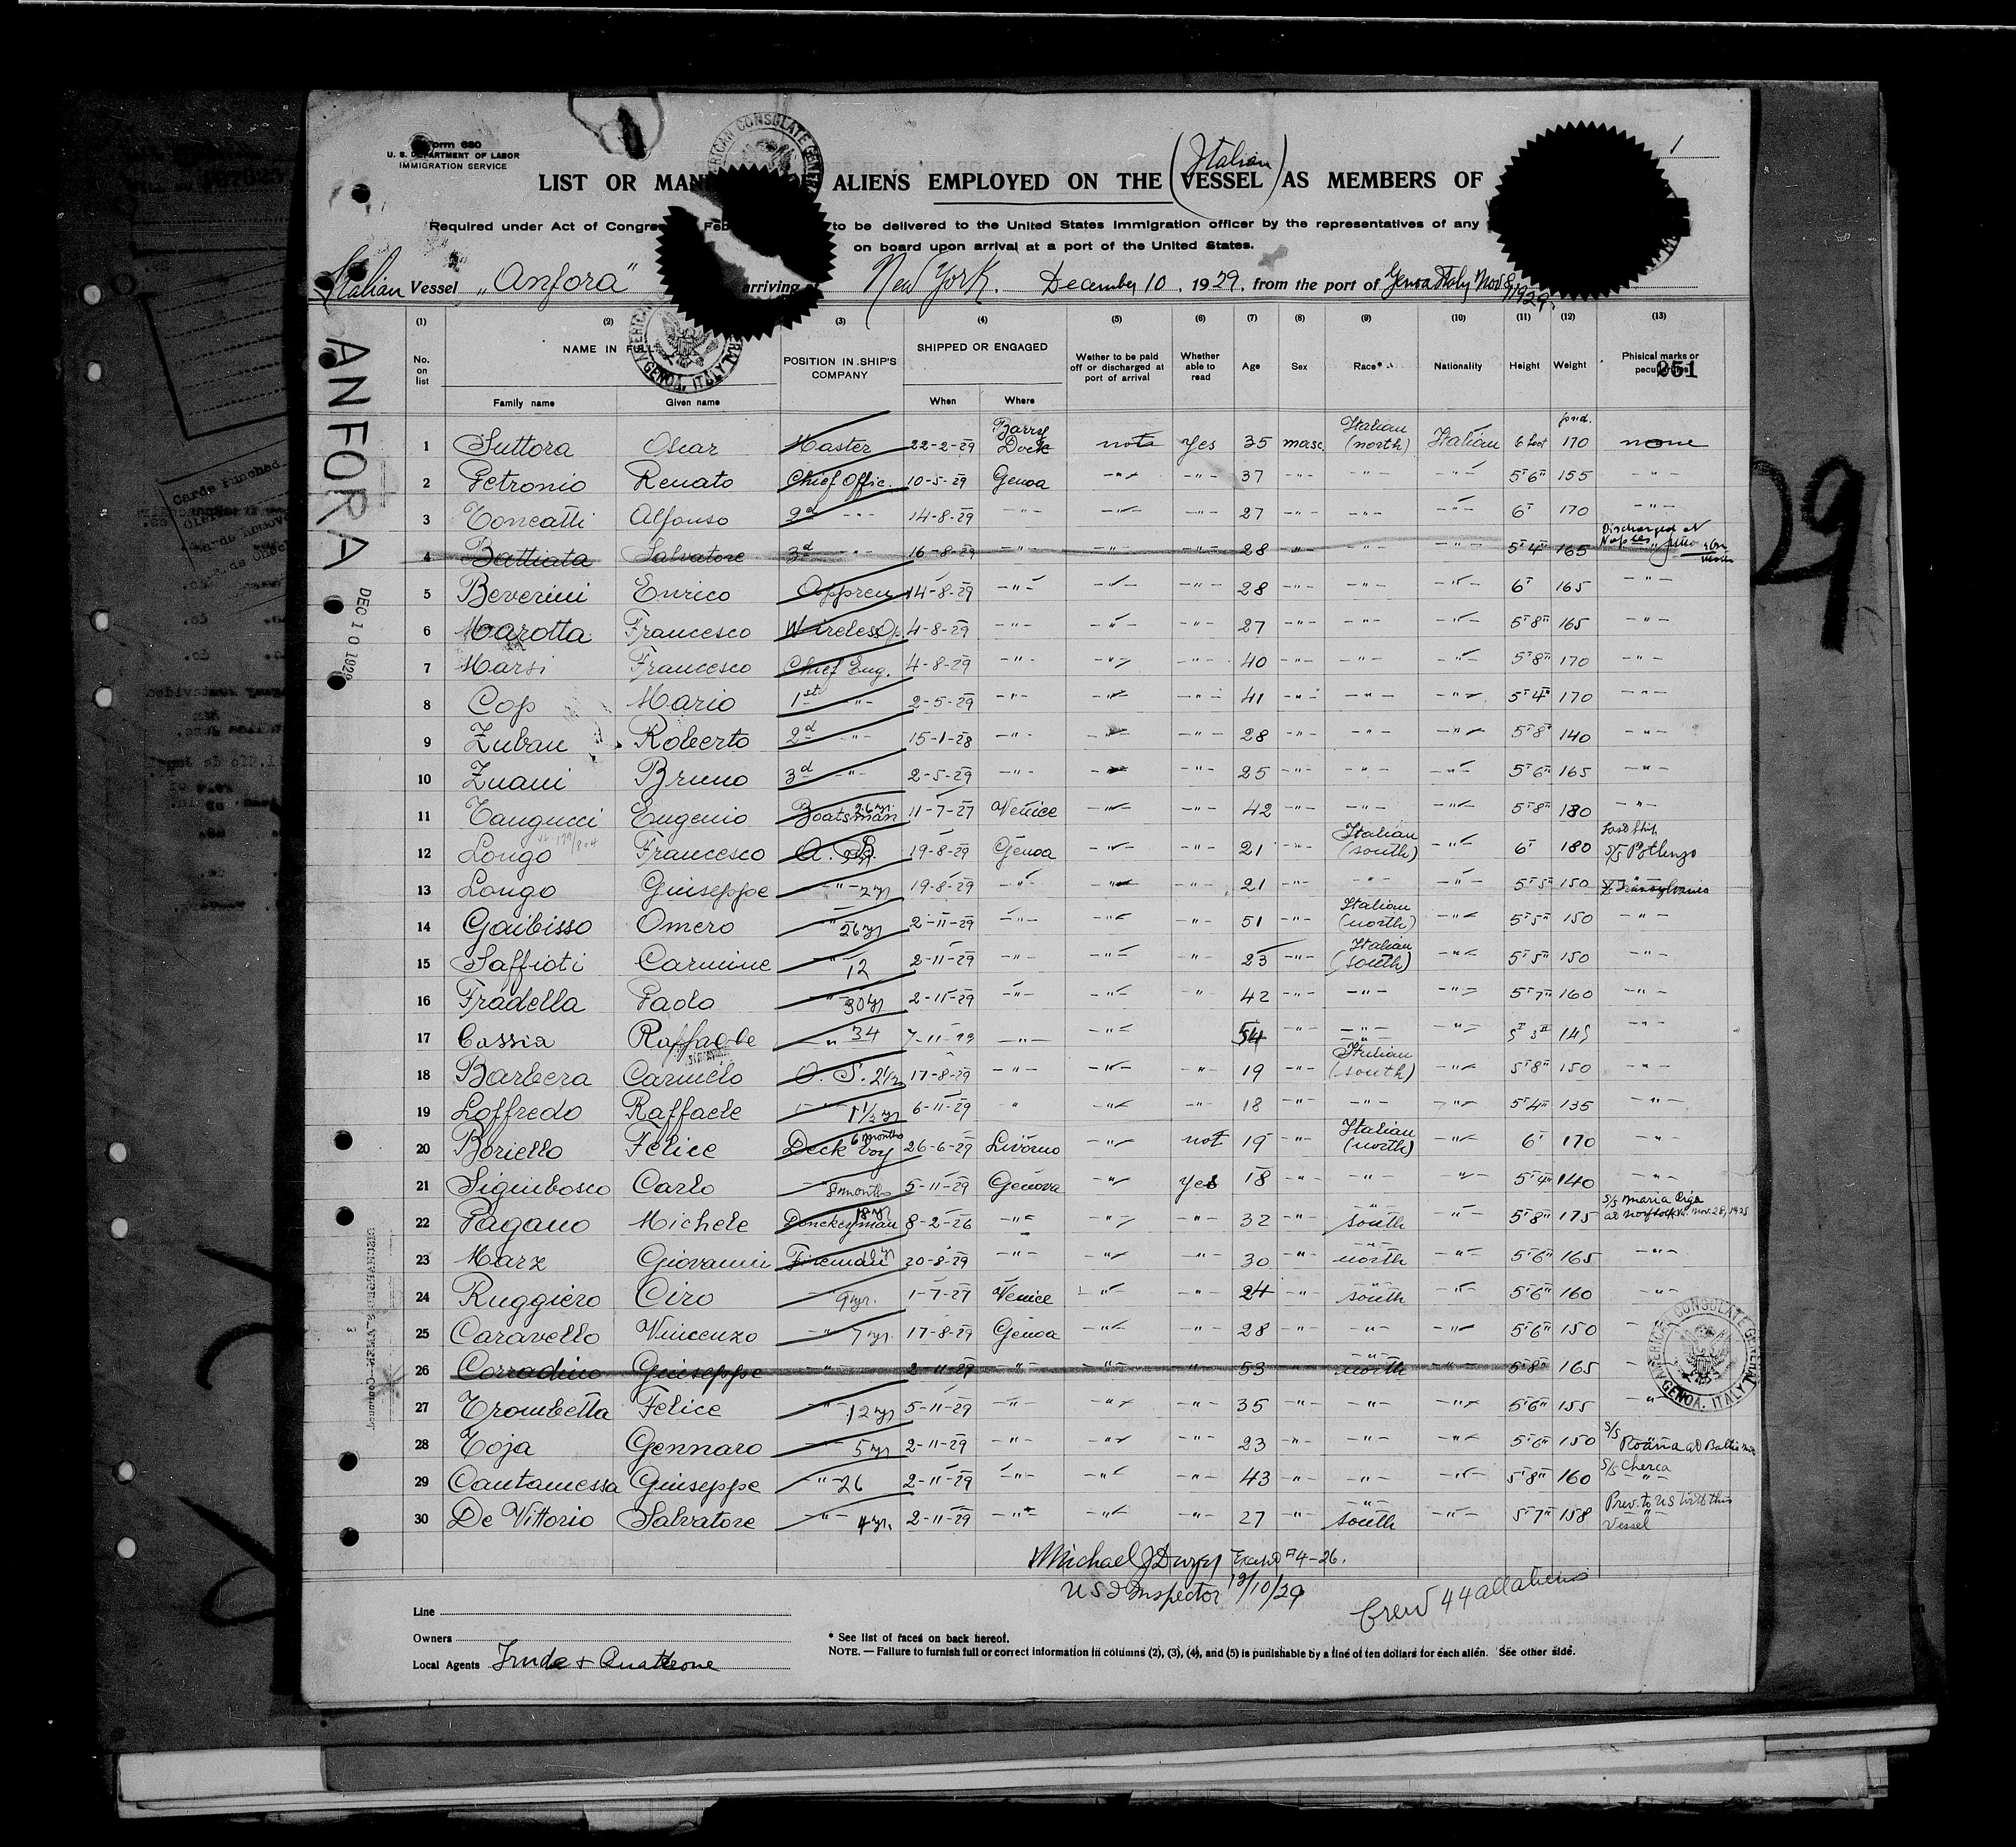 Form 680
U. S. DEPARTMENT OF LABOR
IMMIGRATION SERVICE
1
(Italian)
LIST OR ALIENS EMPLOYED ON THE VESSEL AS MEMBERS OF
Required under Act of to be delivered to the United States Immigration officer by the representatives of any
on board upon arrival at a port of the United States.
Italian Vessel "Anfora" arriving New York. December 10, 1929, from the port of Genoa Italy Nov 8, 1929.
ANFORA
DEC 10 1929
(1) (2) (3) (4) (5) (6) (7) (8) (9) (10) (11) (12) (13)
No. on list NAME IN FULL POSITION IN SHIP'S COMPANY SHIPPED OR ENGAGED Wether to be paid off or discharged at port of arrival Whether able to read Age Sex Race* Nationality Height Weight Phisical marks or
251
Family name Given name When Where
1 Suttora Oscar Master 22-2-29 Barry Dock not yes 35 masc. Italian (north) Italian 6 foot pnd. 170 none
2 Petronio Renato Chief Offic. 10-5-29 Genoa -"- -"- 37 -"- -"- -"- 5'6" 155 -"-
3 Toncatti Alfonso 2d -"- 14-8-29 -"- -"- -"- 27 -"- -"- -"- 6' 170 -"-
4 Battiata Salvatore 3d -"- 16-8-29 -"- -"- -"- 28 -"- -"- -"- 5'4" 165 Discharged at Naples
5 Beverini Enrico Appren 14-8-29 -"- -"- -"- 28 -"- -"- -"- 6' 165 -"-
6 Marotta Francesco Wireless Op. 4-8-29 -"- -"- -"- 27 -"- -"- -"- 5'8" 165 -"-
7 Marsi Francesco Chief Eng. 4-8-29 -"- -"- -"- 40 -"- -"- -"- 5'8" 170 -"-
8 Cop Mario 1st -"- 2-5-29 -"- -"- -"- 41 -"- -"- -"- 5'4" 170 -"-
9 Zuban Roberto 2d -"- 15-1-28 -"- -"- -"- 28 -"- -"- -"- 5'8" 140 -"-
10 Zuani Bruno 3d -"- 2-5-29 -"- -"- -"- 25 -"- -"- -"- 5'6" 165 -"-
11 Tangucci Eugenio Boatsman 26 yr. 11-7-27 Venice -"- -"- 42 -"- -"- -"- 5'8" 180 -"-
12 Longo Francesco A. B. 19-8-29 Genoa -"- -"- 21 -"- Italian (south) -"- 6' 180 Last Ship
13 Longo Giuseppe -"- 2 yr 19-8-29 -"- -"- -"- 21 -"- -"- -"- 5'5" 150 Transylvania
14 Gaibisso Omero -"- 26 yr 2-11-29 -"- -"- -"- 51 -"- Italian (north) -"- 5'5" 150 -"-
15 Saffioti Carmine -"- 12 2-11-29 -"- -"- -"- 25 -"- Italian (south) -"- 5'5" 150 -"-
16 Fradella Paolo -"- 30 yr 2-11-29 -"- -"- -"- 42 -"- -"- -"- 5'7" 160 -"-
17 Cassia Raffaele -"- 34 7-11-29 -"- -"- 54 -"- -"- -"- 5'3" 145 -"-
18 Barbera Carmelo O. S. 2 1/2 17-8-29 -"- -"- -"- 19 -"- Italian (south) -"- 5'8" 150 -"-
19 Loffredo Raffaele -"- 1 1/2 yr 6-11-29 " -"- -"- 18 -"- -"- -"- 5'4" 135 -"-
20 Boriello Felice Deck boy 6 months 26-6-29 Livorno -"- not 19 -"- Italian (north) -"- 6' 170 -"-
21 Sigmbosco Carlo 8 months 5-11-29 Genova -"- yes 18 -"- -"- -"- 5'4" 140 -"-
22 Pagano Michele Donckeyman 18 yr 8-2-26 -"- -"- -"- 32 -"- south -"- 5'8" 175 S/S Maria at Norfolk Va. Nov. 28, 1925
23 Marz Giovanni Fireman 20-8-29 -"- -"- -"- 30 -"- north -"- 5'6" 165 -"-
24 Ruggiero Ciro 9 yr. 1-7-27 Venice -"- -"- 24 -"- south -"- 5'6" 160 -"-
25 Caravello Vincenzo -"- 7 yr. 17-8-29 Genoa -"- -"- 28 -"- -"- -"- 5'6" 150 -
26 Corradino Giuseppe -"- 2-11-29 -"- -"- -"- 53 -"- north -"- 5'8" 165 -
27 Trombetta Felice -"- 12 yr 5-11-29 -"- -"- -"- 35 -"- -"- -"- 5'6" 155 -"-
28 Toja Gennaro -"- 5 yr 2-11-29 -"- -"- -"- 23 -"- -"- -"- 5'6" 150 S/S at
29 Cantamessa Giuseppe -"- 26 2-11-29 -"- -"- -"- 43 -"- -"- -"- 5'8" 160 S/S Cherca
30 De Vittorio Salvatore -"- 4 yr. 2-11-29 -"- -"- -"- 27 -"- south -"- 5'7" 158 Prev. to US with this Vessel
AMERICAN CONSULATE GENERAL GENOA, ITALY
Michael J Exapt #4-26.
U S I Inspector 12/10/29
Crew 44 all aliens
Line
Owners
Local Agents Trude + Quattrone
* See list of races on back hereof.
NOTE. — Failure to furnish full or correct information in columns (2), (3), (4), and (5) is punishable by a fine of ten dollars for each alien. See other side.
29